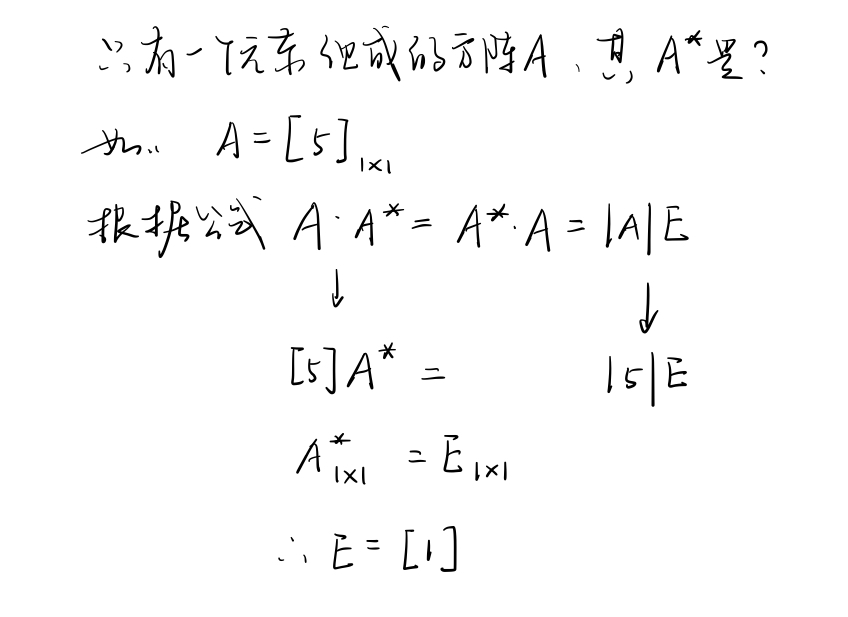 只有一个元素组成的方阵A、其A*是?
如: A=[5]₁ₓ₁
根据公式 A·A*=A*·A=|A|E
↓ ↓
[5]A* = |5|E
A*₁ₓ₁ = E₁ₓ₁
∴ E=[1]